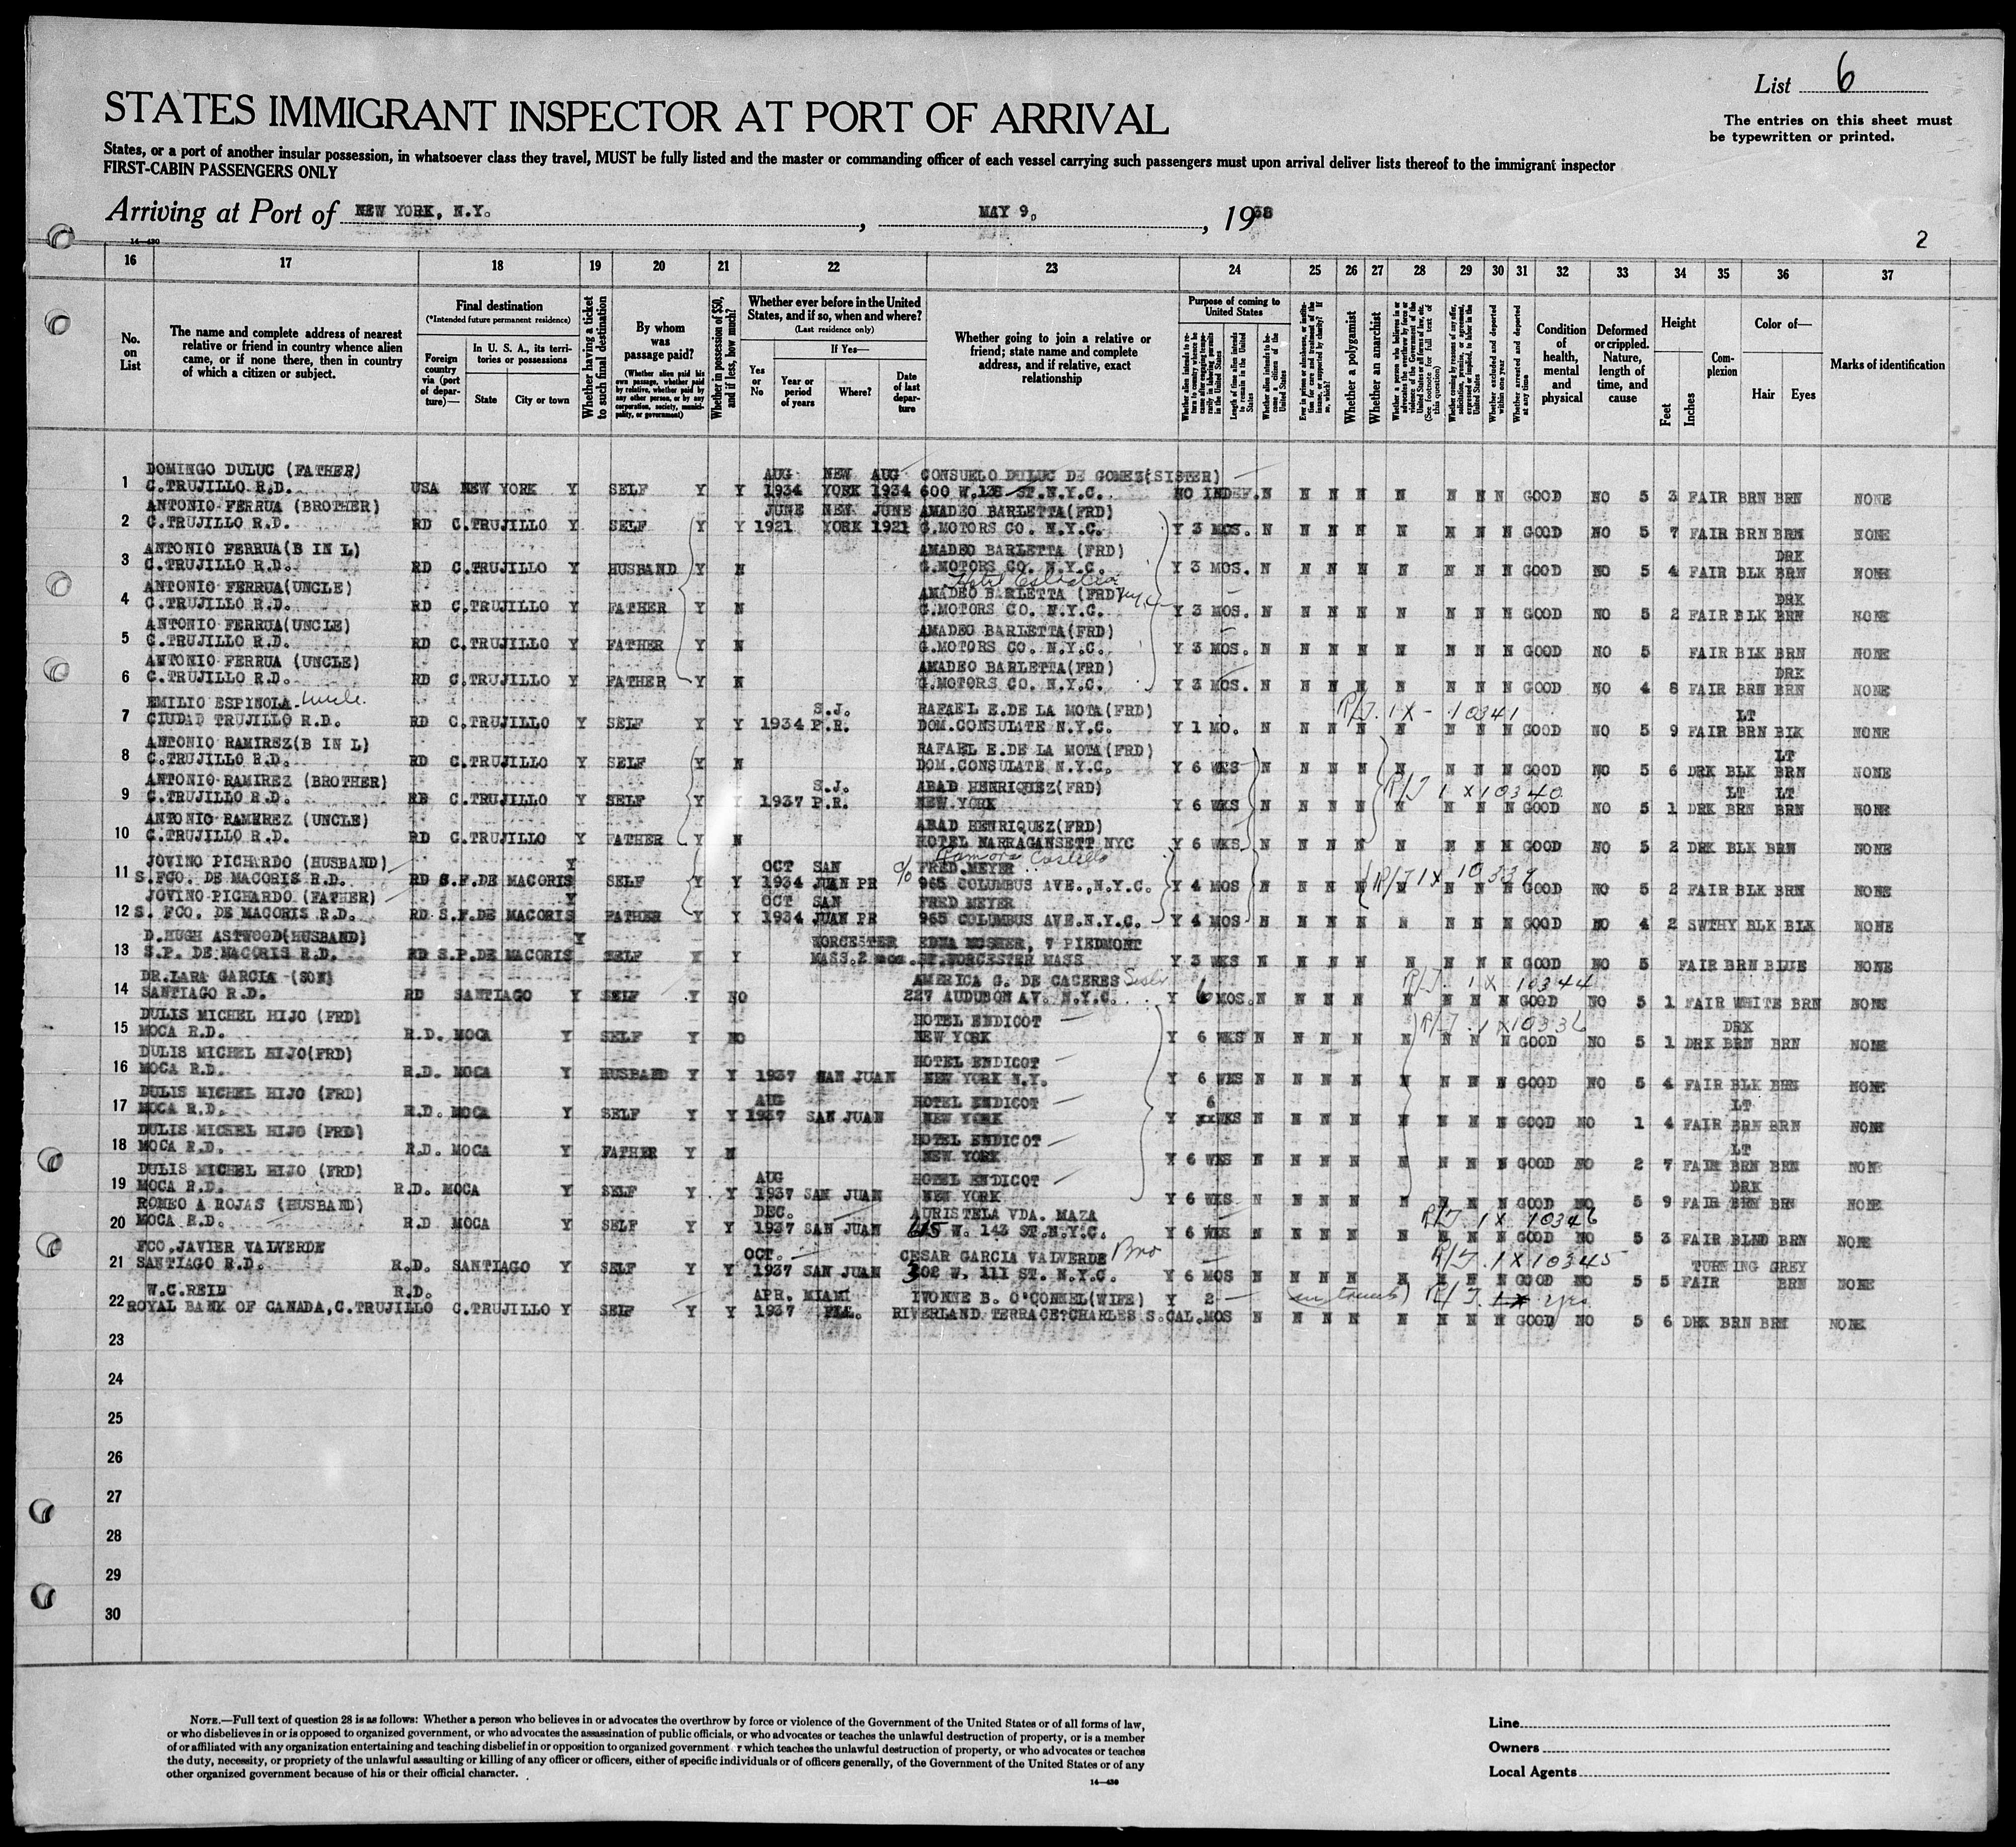 List 6
STATES IMMIGRANT INSPECTOR AT PORT OF ARRIVAL
The entries on this sheet must
be typewritten or printed.
States, or a port of another insular possession, in whatsoever class they travel, MUST be fully listed and the master or commanding officer of each vessel carrying such passengers must upon arrival deliver lists thereof to the immigrant inspector
FIRST-CABIN PASSENGERS ONLY
Arriving at Port of NEW YORK, N.Y., MAY 9, 1938
2
14—430
16 17 18 19 20 21 22 23 24 25 26 27 28 29 30 31 32 33 34 35 36 37
No. on List
The name and complete address of nearest relative or friend in country whence alien came, or if none there, then in country of which a citizen or subject.
Final destination
(*Intended future permanent residence)
Foreign country via (port of departure)—
In U. S. A., its territories or possessions
State
City or town
Whether having a ticket to such final destination
By whom was passage paid?
(Whether alien paid his own passage, whether paid by relative, whether paid by any other person, or by any corporation, society, municipality, or government)
Whether in possession of $50, and if less, how much?
Whether ever before in the United States, and if so, when and where?
(Last residence only)
If Yes—
Yes or No
Year or period of years
Where?
Date of last departure
Whether going to join a relative or friend; state name and complete address, and if relative, exact relationship
Purpose of coming to United States
Length of time alien intends to remain in the United States
Whether alien intends to become a citizen of the United States
Whether a polygamist
Whether an anarchist
Whether excluded and deported within one year
Whether arrested and deported at any time
Condition of health, mental and physical
Deformed or crippled. Nature, length of time, and cause
Height
Feet
Inches
Complexion
Color of—
Hair
Eyes
Marks of identification
DOMINGO DULUC (FATHER) AUG NEW AUG CONSUELO DULUC DE GOMEZ(SISTER)
1 C.TRUJILLO R.D. USA NEW YORK Y SELF Y Y 1934 YORK 1934 600 W.138 ST.N.Y.C. NO INDEF.N N N N N N N N GOOD NO 5 3 FAIR BRN BRN NONE
ANTONIO FERRUA (BROTHER) JUNE NEW JUNE AMADEO BARLETTA(FRD)
2 C.TRUJILLO R.D. RD C.TRUJILLO Y SELF Y Y 1921 YORK 1921 G.MOTORS CO. N.Y.C. Y 3 MOS. N N N N N N N N GOOD NO 5 7 FAIR BRN BRN NONE
ANTONIO FERRUA(B IN L) AMADEO BARLETTA (FRD) DRK
3 C.TRUJILLO R.D. RD C.TRUJILLO Y HUSBAND Y N G.MOTORS CO. N.Y.C. Y 3 MOS. N N N N N N N N GOOD NO 5 4 FAIR BLK BRN NONE
ANTONIO FERRUA(UNCLE) AMADEO BARLETTA (FRD) DRK
4 C.TRUJILLO R.D. RD C.TRUJILLO Y FATHER Y N G.MOTORS CO. N.Y.C. Y 3 MOS. N N N N N N N N GOOD NO 5 2 FAIR BLK BRN NONE
ANTONIO FERRUA(UNCLE) AMADEO BARLETTA(FRD)
5 C.TRUJILLO R.D. RD C.TRUJILLO Y FATHER Y N G.MOTORS CO. N.Y.C. Y 3 MOS. N N N N N N N N GOOD NO 5 FAIR BLK BRN NONE
ANTONIO FERRUA (UNCLE) AMADEO BARLETTA(FRD) DRK
6 C.TRUJILLO R.D. RD C.TRUJILLO Y FATHER Y N G.MOTORS CO. N.Y.C. Y 3 MOS. N N N N N N N N GOOD NO 4 8 FAIR BRN BRN NONE
EMILIO ESPINOLA uncle S.J. RAFAEL E.DE LA MOTA(FRD) R/T. 1 X - 10341 LT
7 CIUDAD TRUJILLO R.D. RD C.TRUJILLO Y SELF Y Y 1934 P.R. DOM.CONSULATE N.Y.C. Y 1 MO. N N N N N N N N GOOD NO 5 9 FAIR BRN BLK NONE
ANTONIO RAMIREZ(B IN L) RAFAEL E.DE LA MOTA(FRD) LT
8 C.TRUJILLO R.D. RD C.TRUJILLO Y SELF Y N DOM.CONSULATE N.Y.C. Y 6 WKS N N N N N N N N GOOD NO 5 6 DRK BLK BRN NONE
ANTONIO RAMIREZ (BROTHER) S.J. ABAD HENRIQUEZ(FRD) R/T 1 X 10340 LT LT
9 C.TRUJILLO R.D. RD C.TRUJILLO Y SELF Y Y 1937 P.R. NEW YORK Y 6 WKS N N N N N N N N GOOD NO 5 1 DRK BRN BRN NONE
ANTONIO RAMEREZ (UNCLE) ABAD HENRIQUEZ(FRD)
10 C.TRUJILLO R.D. RD C.TRUJILLO Y FATHER Y N HOTEL NARRAGANSETT NYC Y 6 WKS N N N N N N N N GOOD NO 5 2 DRK BLK BRN NONE
JOVINO PICHARDO (HUSBAND) Y OCT SAN c/o FRED.MEYER
11 S.FCO. DE MACORIS R.D. RD S.F.DE MACORIS SELF Y Y 1934 JUAN PR 965 COLUMBUS AVE.,N.Y.C. Y 4 MOS N N N N N N N N GOOD NO 5 2 FAIR BLK BRN NONE
JOVINO PICHARDO (FATHER) Y OCT SAN FRED MEYER
12 S. FCO. DE MACORIS R.D. RD S.F.DE MACORIS FATHER Y Y 1934 JUAN PR 965 COLUMBUS AVE.N.Y.C. Y 4 MOS N N N N N N N N GOOD NO 4 2 SWTHY BLK BLK NONE
D.HUGH ASTWOOD(HUSBAND) Y WORCESTER EDNA MOSHER, 7 PIEDMONT
13 S.P. DE MACORIS R.D. RD S.P.DE MACORIS SELF Y Y MASS.2 mos. ST.WORCESTER MASS Y 3 WKS N N N N N N N N GOOD NO 5 FAIR BRN BLUE NONE
DR.LARA GARCIA (SON) AMERICA G. DE CACERES Sister R/T. 1 X 10344
14 SANTIAGO R.D. RD SANTIAGO Y SELF Y NO 227 AUDUBON AV. N.Y.C. Y 6 MOS. N N N N N N N N GOOD NO 5 1 FAIR WHITE BRN NONE
DULIS MICHEL HIJO (FRD) HOTEL ENDICOT R/T. 1 X 10336 DRK
15 MOCA R.D. R.D. MOCA Y SELF Y NO NEW YORK Y 6 WKS N N N N N N N N GOOD NO 5 1 DRK BRN BRN NONE
DULIS MICHEL HIJO(FRD) HOTEL ENDICOT
16 MOCA R.D. R.D. MOCA Y HUSBAND Y Y 1937 SAN JUAN NEW YORK N.Y. Y 6 WKS N N N N N N N N GOOD NO 5 4 FAIR BLK BRN NONE
DULIS MICHEL HIJO (FRD) AUG HOTEL ENDICOT 6 LT
17 MOCA R.D. R.D. MOCA Y SELF Y Y 1937 SAN JUAN NEW YORK Y xxWKS N N N N N N N N GOOD NO 1 4 FAIR BRN BRN NONE
DULIS MICHEL HIJO (FRD) HOTEL ENDICOT LT
18 MOCA R.D. R.D. MOCA Y FATHER Y N NEW YORK Y 6 WKS N N N N N N N N GOOD NO 2 7 FAIR BRN BRN NONE
DULIS MICHEL HIJO (FRD) AUG HOTEL ENDICOT DRK
19 MOCA R.D. R.D. MOCA Y SELF Y Y 1937 SAN JUAN NEW YORK Y 6 WKS N N N N N N N N GOOD NO 5 9 FAIR BRN BRN NONE
ROMEO A ROJAS (HUSBAND) DEC. AURISTELA VDA. MAZA R/T. 1 X 10346
20 MOCA R.D. R.D MOCA Y SELF Y Y 1937 SAN JUAN 615 W. 143 ST.N.Y.C. Y 6 WKS N N N N N N N N GOOD NO 5 3 FAIR BLND BRN NONE
FCO.JAVIER VALVERDE OCT. CESAR GARCIA VALVERDE Bro R/T. 1 X 10345 TURNING GREY
21 SANTIAGO R.D. R.D. SANTIAGO Y SELF Y Y 1937 SAN JUAN 302 W. 111 ST. N.Y.C. Y 6 MOS N N N N N N N N GOOD NO 5 5 FAIR BRN NONE
W.C.REID R.D. APR. MIAMI IVONNE B. O'CONNEL(WIFE) Y 2 R/T. 1X yes
22 ROYAL BANK OF CANADA,C.TRUJILLO C.TRUJILLO Y SELF Y Y 1937 FLA. RIVERLAND TERRACE?CHARLES S.CAL.MOS N N N N N N N N GOOD NO 5 6 DRK BRN BRN NONE
23
24
25
26
27
28
29
30
NOTE.—Full text of question 28 is as follows: Whether a person who believes in or advocates the overthrow by force or violence of the Government of the United States or of all forms of law,
or who disbelieves in or is opposed to organized government, or who advocates the assassination of public officials, or who advocates or teaches the unlawful destruction of property, or is a member
of or affiliated with any organization entertaining and teaching disbelief in or opposition to organized government r which teaches the unlawful destruction of property, or who advocates or teaches
the duty, necessity, or propriety of the unlawful assaulting or killing of any officer or officers, either of specific individuals or of officers generally, of the Government of the United States or of any
other organized government because of his or their official character.
14—430
Line
Owners
Local Agents